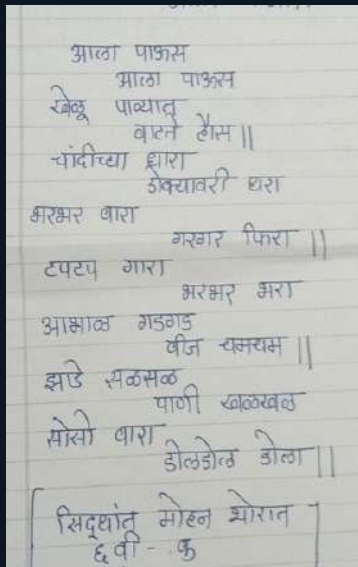 आला पाऊस
आला पाऊस
खेळू पाण्यात
वाटते हौस ||
चांदीच्या धारा
डोक्यावरी धरा
भरभर वारा
गरगर फिरा ||
टपटप गारा
भरभर भरा
आभाळ गडगड
वीज चमचम ||
झाडे सळसळ
पाणी खळखळ
सोसो वारा
डोलडोल डोला ||
सिद्धांत मोहन थोरात
६ वी - कु